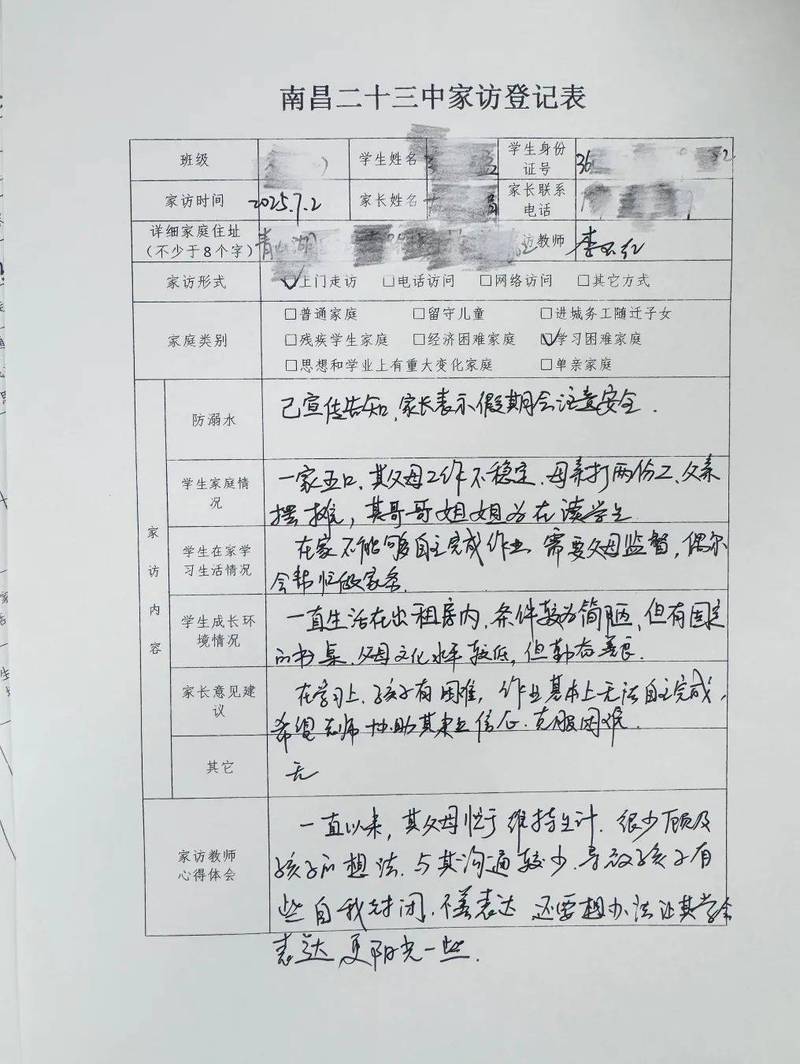 南昌二十三中家访登记表
班级 学生姓名 学生身份证号 36 2
家访时间 2025.7.2 家长姓名 员 家长联系电话
详细家庭住址（不少于8个字） 青山湖 访教师 李 红
家访形式 ☑上门走访 □电话访问 □网络访问 □其它方式
家庭类别
□普通家庭 □留守儿童 □进城务工随迁子女
□残疾学生家庭 □经济困难家庭 ☑学习困难家庭
□思想和学业上有重大变化家庭 □单亲家庭
家访内容
防溺水 已宣传告知,家长表示假期会注意安全.
学生家庭情况 一家五口,其父母工作不稳定.母亲打两份工,父亲
摆摊,其哥哥姐姐为在读学生
学生在家学习生活情况 在家不能够自主完成作业 需要父母监督,偶尔
会帮忙做家务
学生成长环境情况 一直生活在出租房内,条件较为简陋,但有固定
的书桌.父母文化水平较低,但勤劳善良.
家长意见建议 在学习上,孩子有困难,作业基本上无法自主完成,
希望老师协助其建立信心.克服困难.
其它 无
家访教师心得体会 一直以来,其父母忙于维持生计.很少顾及
孩子的想法.与其沟通较少.导致孩子有
些自我封闭.不善表达 还要想办法让其学会
表达,更阳光一些.